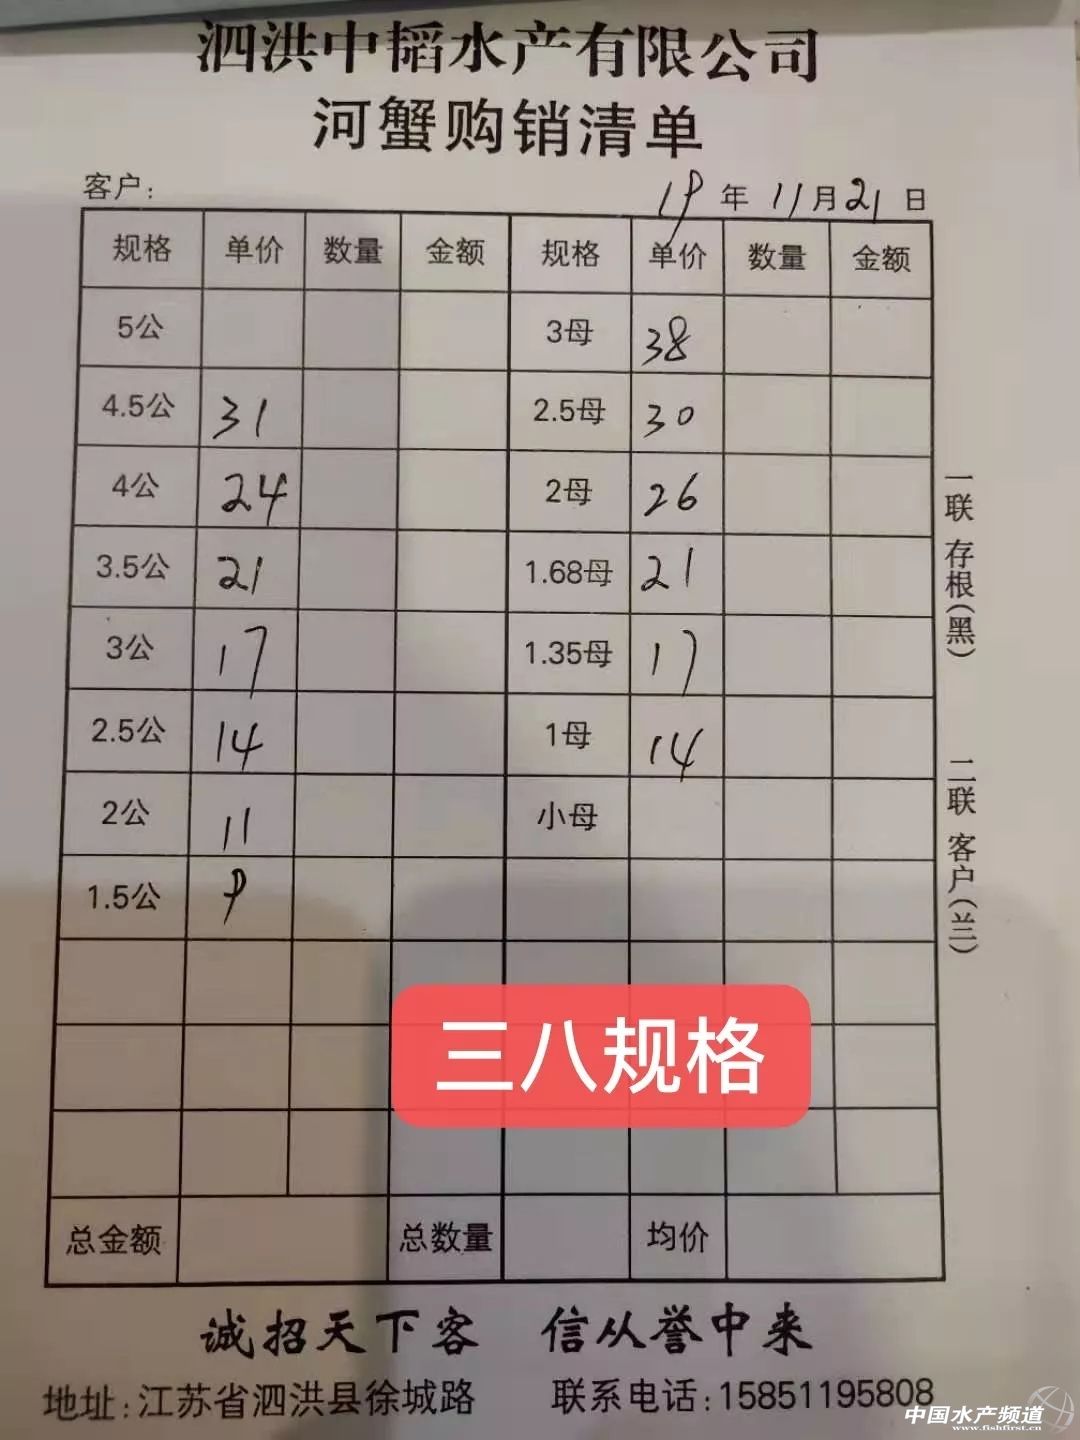 泗洪中韬水产有限公司
河蟹购销清单
客户: 19年11月21日
规格 单价 数量 金额 规格 单价 数量 金额
5公 3母 38
4.5公 31 2.5母 30
4公 24 2母 26
3.5公 21 1.68母 21
3公 17 1.35母 17
2.5公 14 1母 14
2公 11 小母
1.5公 9
三八规格
总金额 总数量 均价
一联 存根(黑)
二联 客户(兰)
诚招天下客 信从誉中来
地址:江苏省泗洪县徐城路 联系电话:15851195808
中国水产频道
www.fishfirst.cn